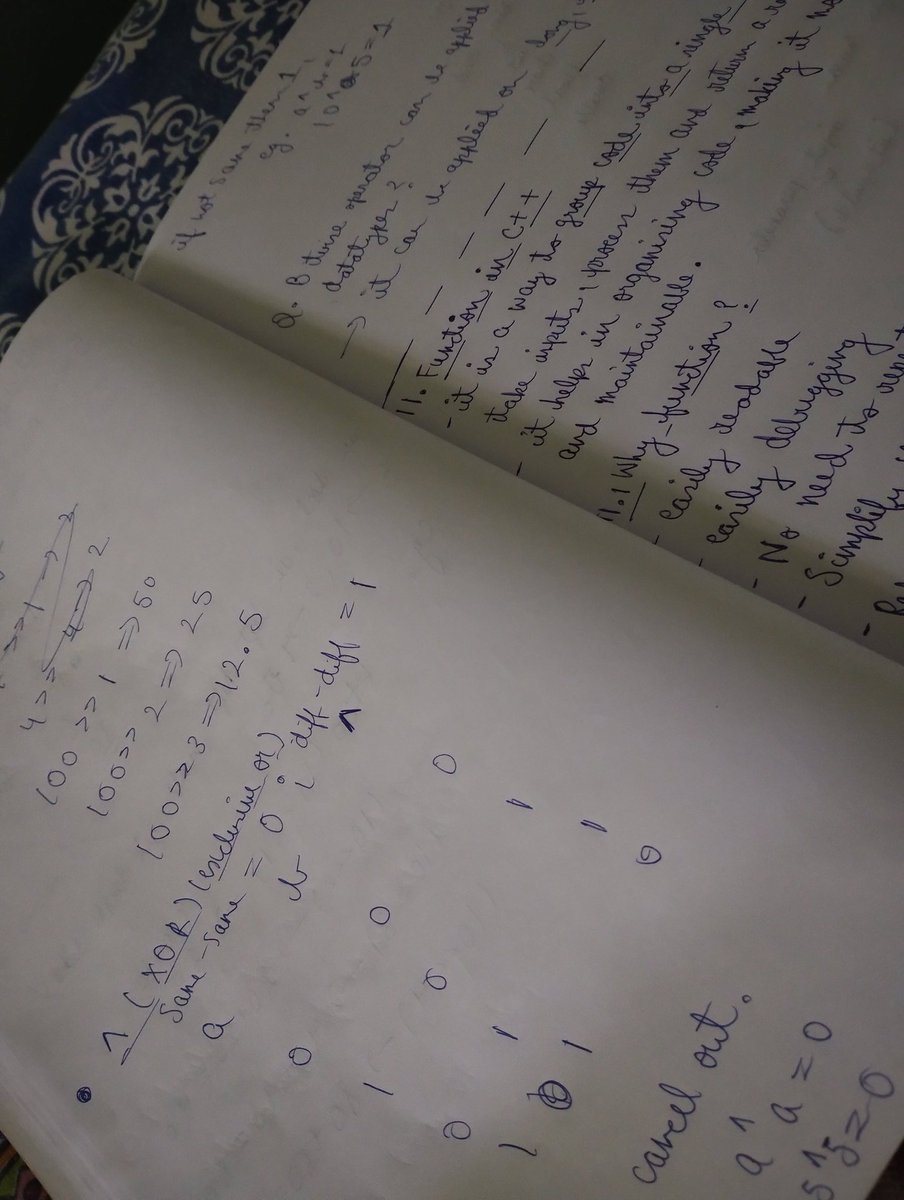 4 >>
100 >> 1 => 50
100 >> 2 => 25
100 >> 3 => 12.5
^ (XOR) (exclusive or)
Same - Same = 0 ; diff - diff = 1
a b ^
0 0 0
1 0 1
0 1 1
1 1 0
cancel out.
a ^ a = 0
5 ^ 5 = 0
if not same then 1
eg.
Q. Bitwise operator can be applied
datatypes?
→ it can be applied on
11. Function in C++
- it is a way to group code into a single
take inputs, process them and return a
- it helps in organising code, making it
and maintainable.
11.1 Why-function?
- easily readable
- easily debugging
- No need to
- Simplify